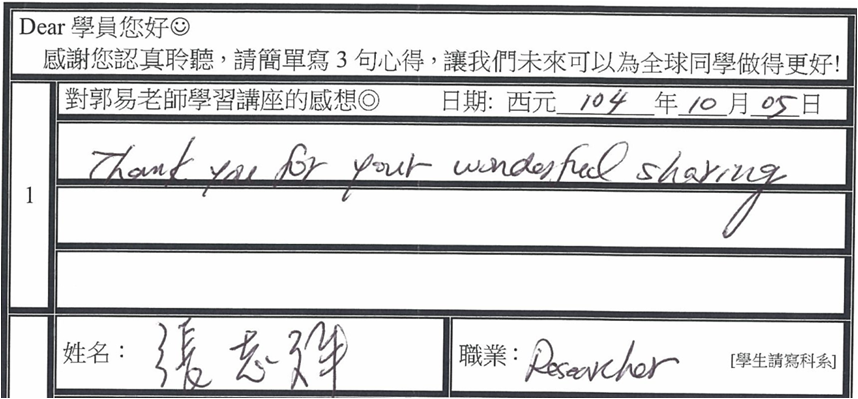 Dear 學員您好☺
感謝您認真聆聽，請簡單寫 3 句心得，讓我們未來可以為全球同學做得更好!
對郭易老師學習講座的感想◎ 日期: 西元 104 年 10 月 05 日
1
Thank you for your wonderful sharing
姓名： 張志
職業： Researcher [學生請寫科系]